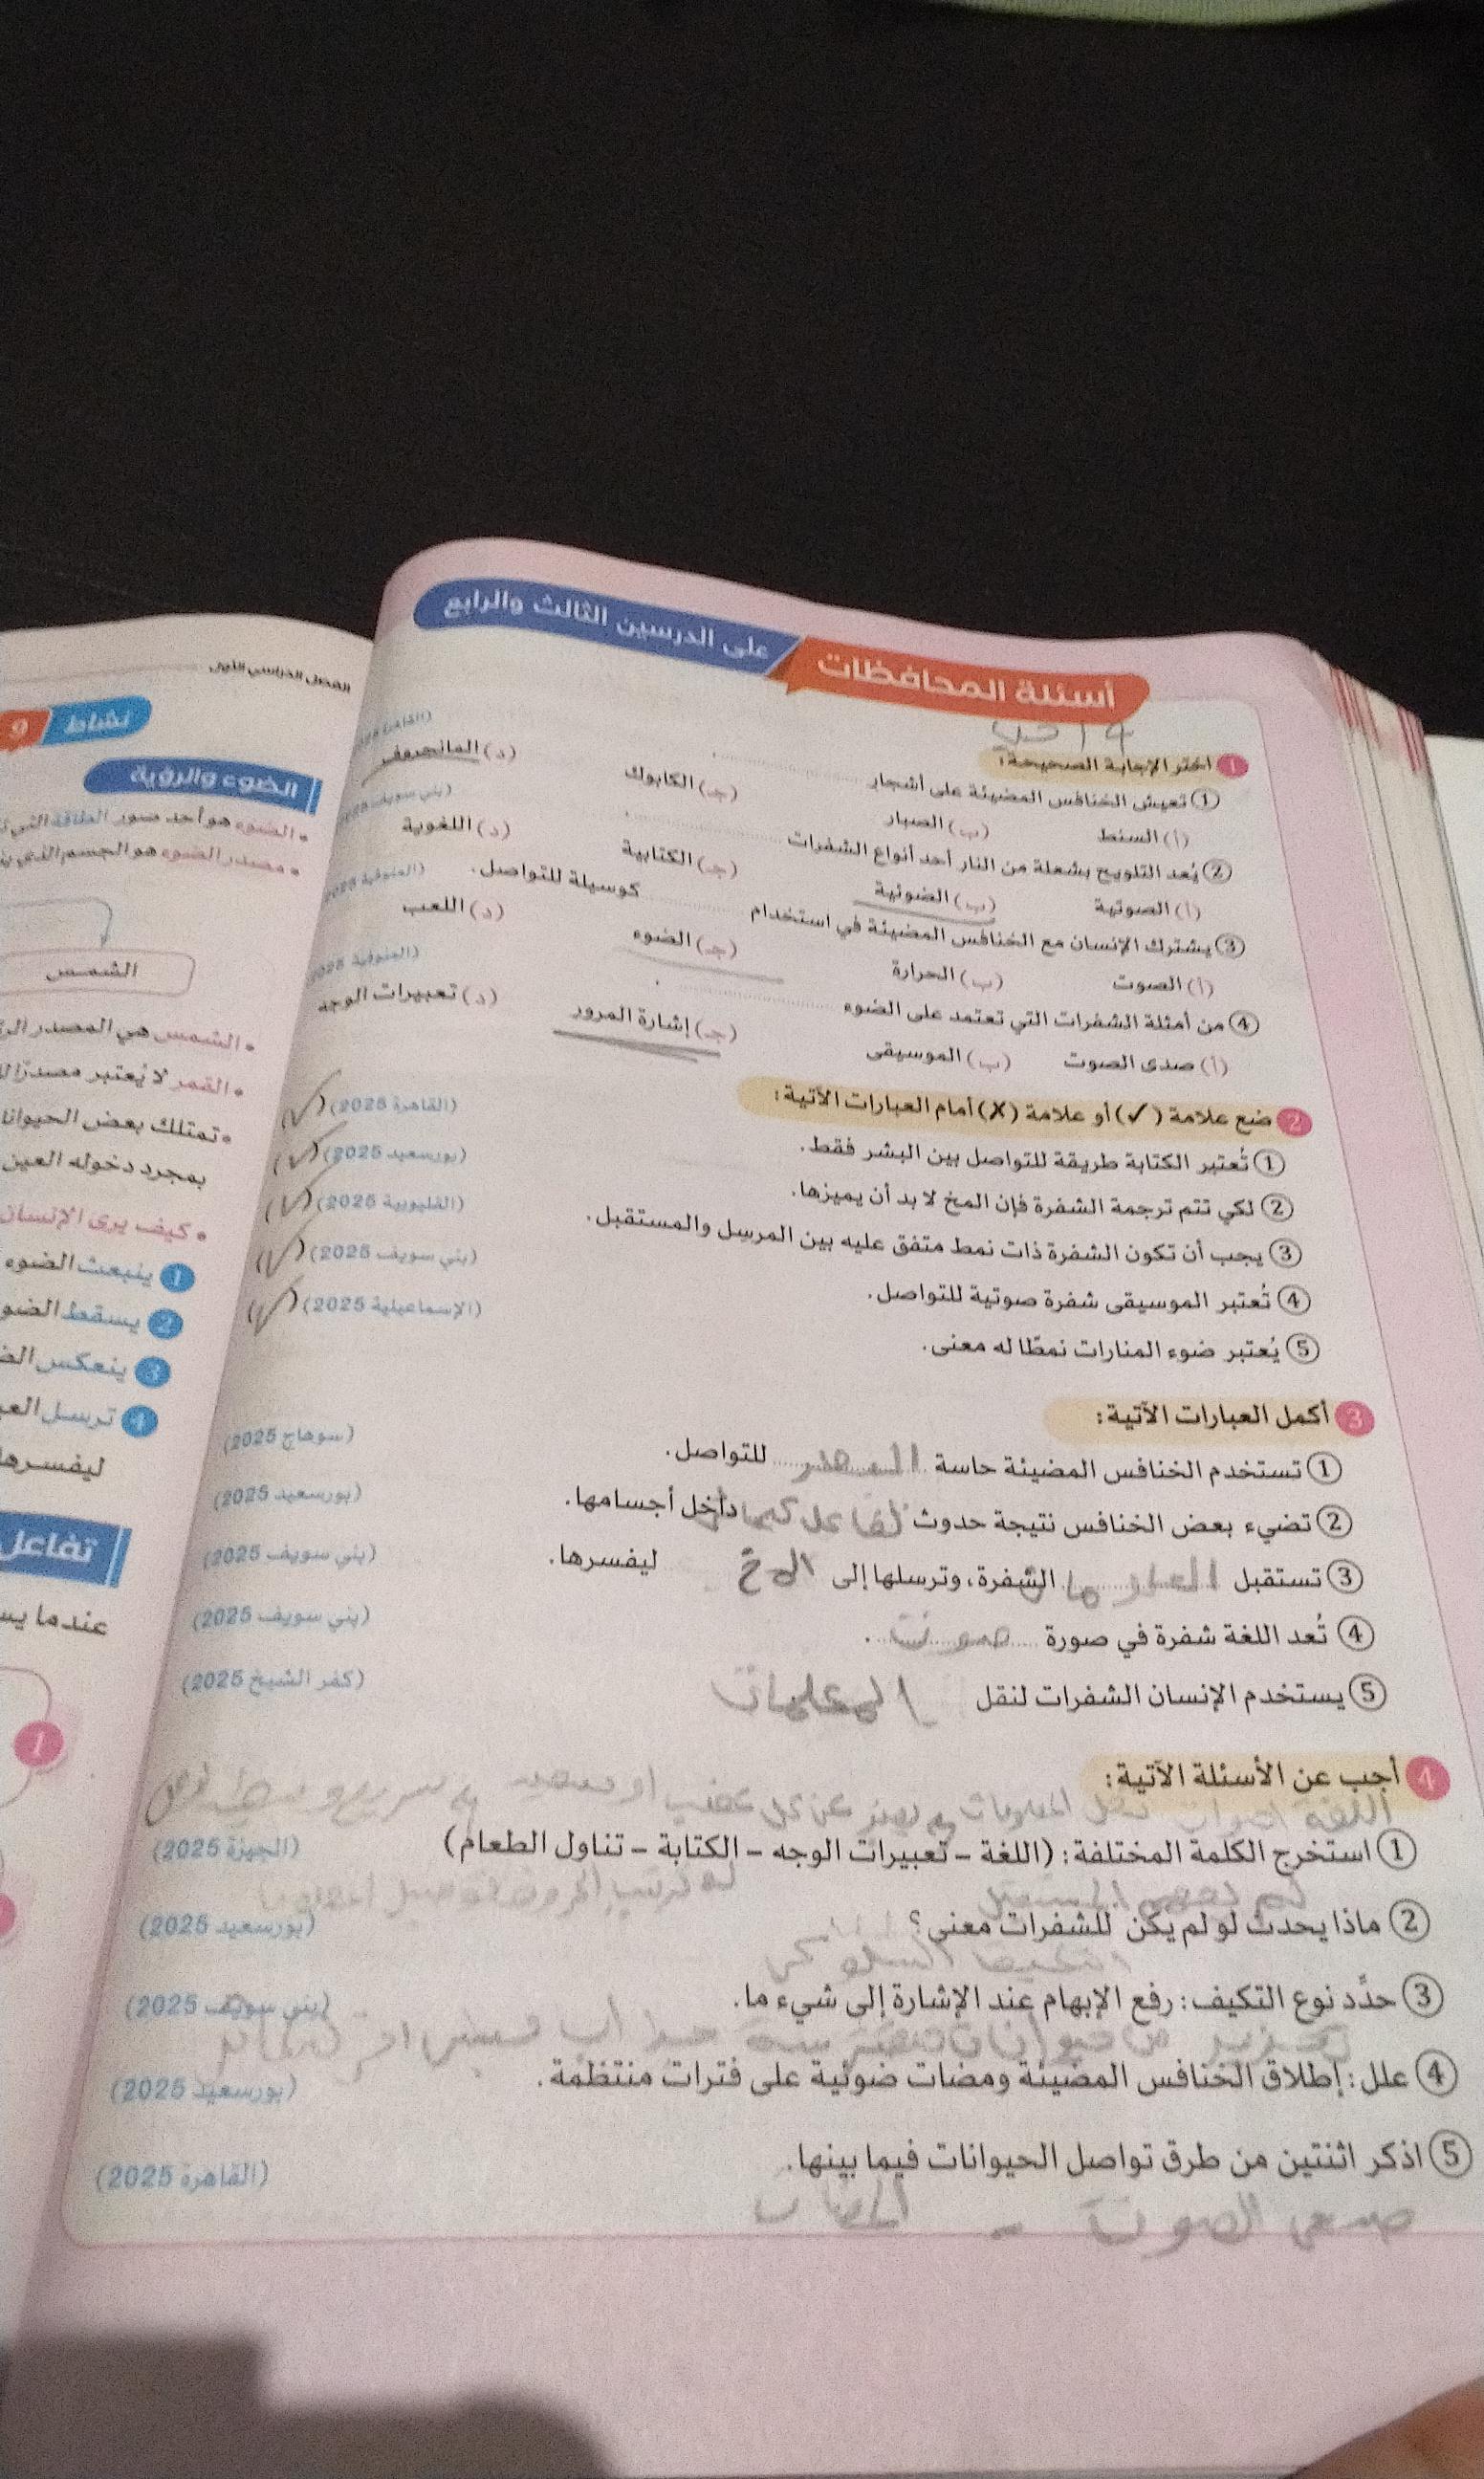 أسئلة المحافظات على الدرسين الثالث والرابع
1 اختر الإجابة الصحيحة:
① تعيش الخنافس المضيئة على أشجار ............ .
(أ) السنط (ب) الصبار (جـ) الكابوك (د) المانجروف
② يُعد التلويح بشعلة من النار أحد أنواع الشفرات ............ . (بني سويف 2025)
(أ) الصوتية (ب) الضوئية (جـ) الكتابية (د) اللغوية
③ يشترك الإنسان مع الخنافس المضيئة في استخدام ............ كوسيلة للتواصل. (المنوفية 2025)
(أ) الصوت (ب) الحرارة (جـ) الضوء (د) اللعب
④ من أمثلة الشفرات التي تعتمد على الضوء ............ . (المنوفية 2025)
(أ) صدى الصوت (ب) الموسيقى (جـ) إشارة المرور (د) تعبيرات الوجه
2 ضع علامة (✓) أو علامة (✗) أمام العبارات الآتية:
① تُعتبر الكتابة طريقة للتواصل بين البشر فقط. (القاهرة 2025) (✓)
② لكي تتم ترجمة الشفرة فإن المخ لا بد أن يميزها. (بورسعيد 2025) (✓)
③ يجب أن تكون الشفرة ذات نمط متفق عليه بين المرسل والمستقبل. (القليوبية 2025) (✓)
④ تُعتبر الموسيقى شفرة صوتية للتواصل. (بني سويف 2025) (✓)
⑤ يُعتبر ضوء المنارات نمطًا له معنى. (الإسماعيلية 2025) (✓)
3 أكمل العبارات الآتية:
① تستخدم الخنافس المضيئة حاسة البصر للتواصل. (سوهاج 2025)
② تضيء بعض الخنافس نتيجة حدوث داخل أجسامها. (بورسعيد 2025)
③ تستقبل الشفرة، وترسلها إلى المخ ليفسرها. (بني سويف 2025)
④ تُعد اللغة شفرة في صورة صوت . (بني سويف 2025)
⑤ يستخدم الإنسان الشفرات لنقل (كفر الشيخ 2025)
4 أجب عن الأسئلة الآتية:
① استخرج الكلمة المختلفة: (اللغة - تعبيرات الوجه - الكتابة - تناول الطعام) (الجيزة 2025)
② ماذا يحدث لو لم يكن للشفرات معنى؟ (بورسعيد 2025)
③ حدِّد نوع التكيف: رفع الإبهام عند الإشارة إلى شيء ما. (بني سويف 2025)
④ علل: إطلاق الخنافس المضيئة ومضات ضوئية على فترات منتظمة. (بورسعيد 2025)
⑤ اذكر اثنتين من طرق تواصل الحيوانات فيما بينها. (القاهرة 2025)
الفصل الدراسي الأول
نشاط 9
الضوء والرؤية
• الضوء هو أحد صور الطاقة التي
• مصدر الضوء هو الجسم الذي
الشمس
• الشمس هي المصدر
• القمر لا يُعتبر مصدرًا
• تمتلك بعض
بمجرد دخوله العين
• كيف يرى الإنسان
1 ينبعث الضوء
2 يسقط
3 ينعكس
4 ترسل
ليفسرها
تفاعل
عندما
1